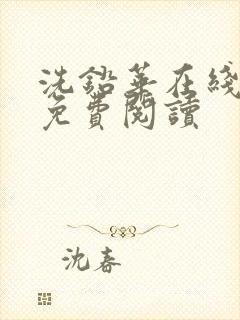 洗鉛華在綫
免費閱讀
沈春